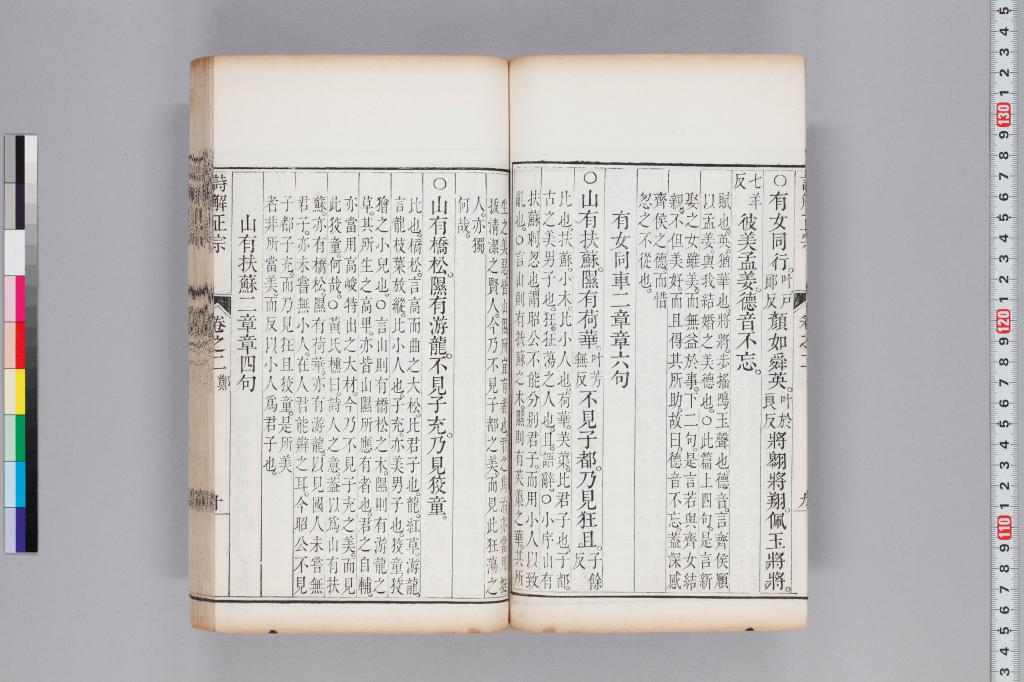 ○有女同行。叶戶郎反顏如舜英。叶於良反將翺將翔。佩玉將將。
七羊反彼美孟姜德音不忘。
賦也。英。猶華也。將將。歩搖鳴玉聲也。德音。言齊侯願
以孟姜與我結婚之美德也。○此篇上四句。是言新
娶之女雖美。而無益於事。下二句是言若與齊女結
親。不但美好。而且得其所助。故曰德音不忘。葢深感
齊侯之德。而惜
忽之不從也。
有女同車二章章六句
○山有扶蘇。隰有荷華。叶芳無反不見子都。乃見狂且。子餘反
比也。扶蘇。小木。比小人也。荷華。芙蕖。比君子也。子都。
古之美男子也。狂。狂蕩之人也。且。語辭。○小序山有
扶蘇刺忽也。謂昭公不能分别君子。而用小人以致
亂也。○言山則有扶蘇之木。隰則有芙蕖之華。其所
拔清潔之賢人。今乃不見子都之美。而見此狂蕩之
人。亦獨
何哉。
○山有橋松。隰有游龍。不見子充。乃見狡童。
比也。橋松。言高而曲之大松。比君子也。龍。紅草。游龍。
言龍枝葉放縱。比小人也。子充亦美男子也。狡童。狡
獪之小兒也。○言山則有橋松之木。隰則有游龍之
草。其所生之高卑。亦皆山隰所應有者也。君之自輔。
亦當用高峻特出之大材。今乃不見子充之美。而見
此狡童。何哉。○黃氏櫄曰。詩人之意。葢以爲山有扶
蘇。亦有橋松。隰有荷華。亦有游龍。以見國人未嘗無
君子。亦未嘗無小人。在人君能辨之耳。今昭公不見
子都子充。而乃見狂且狡童。是所美
者非所當美。而反以小人爲君子也。
山有扶蘇二章章四句
詩解正宗 卷之二 鄭 十